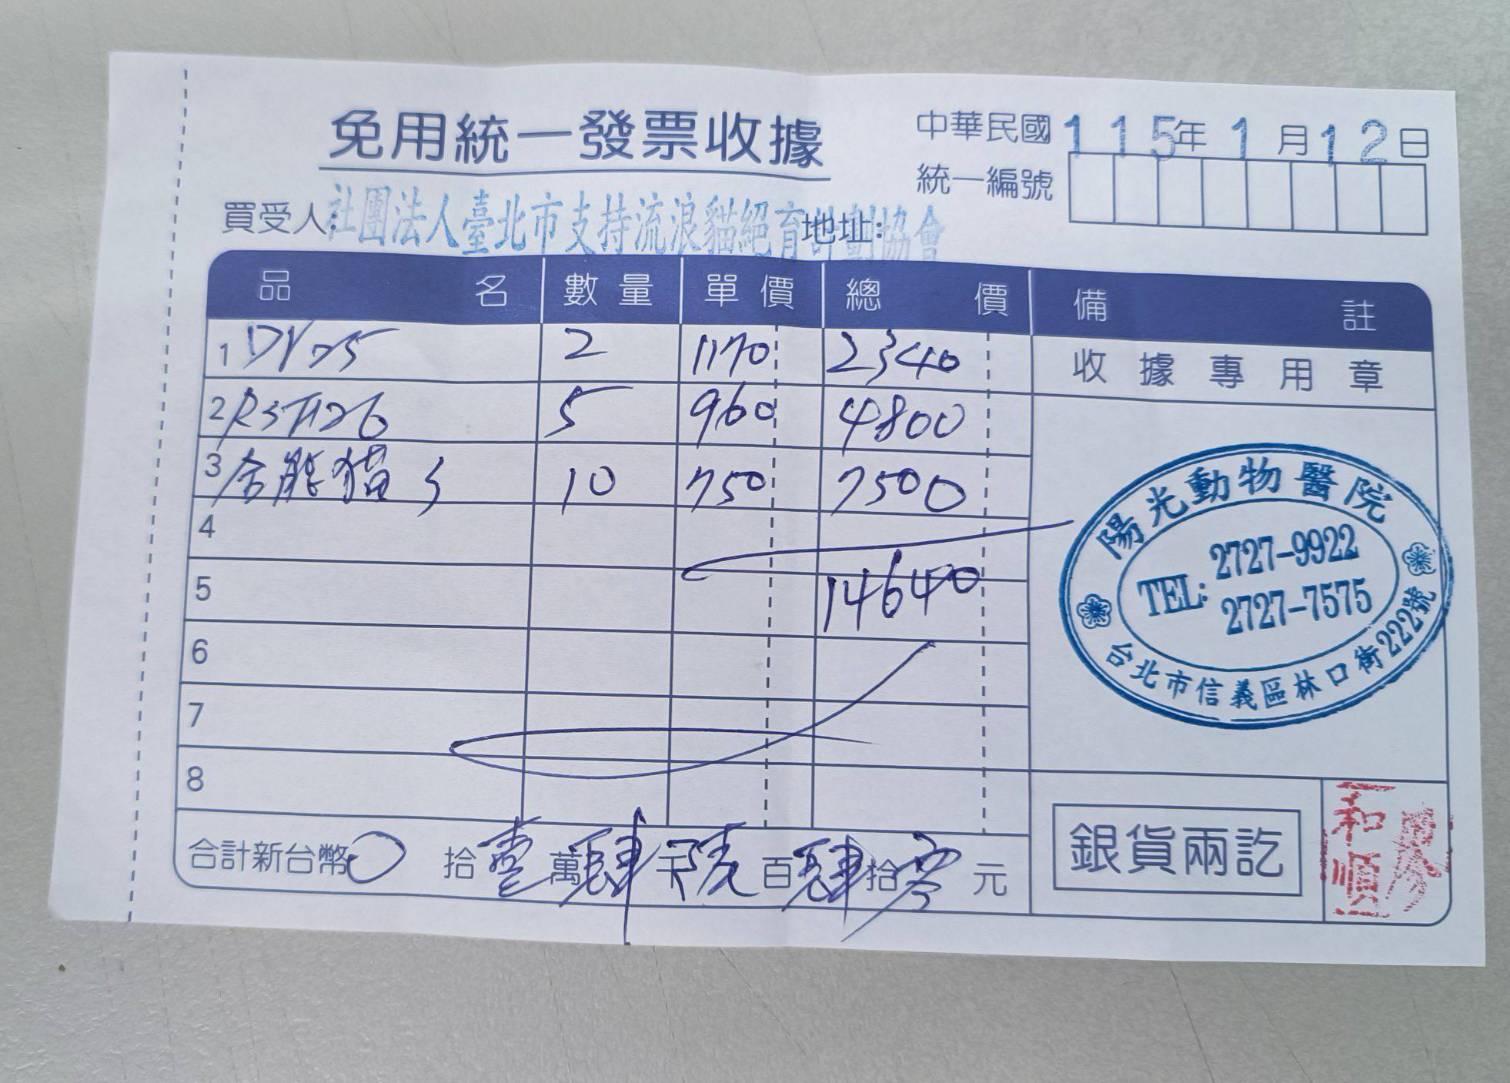 免用統一發票收據
中華民國115年1月12日
統一編號
買受人:社團法人臺北市支持流浪貓絕育計劃協會
地址:
品名 數量 單價 總價 備註
1 2 1170 2340
收據專用章
2 5 960 4800
3 全能貓S 10 750 7500
4
5 14640
6
7
8
陽光動物醫院
TEL: 2727-9922
2727-7575
台北市信義區林口街222號
合計新台幣 0 拾壹萬肆千陸百肆拾零元
銀貨兩訖
和順